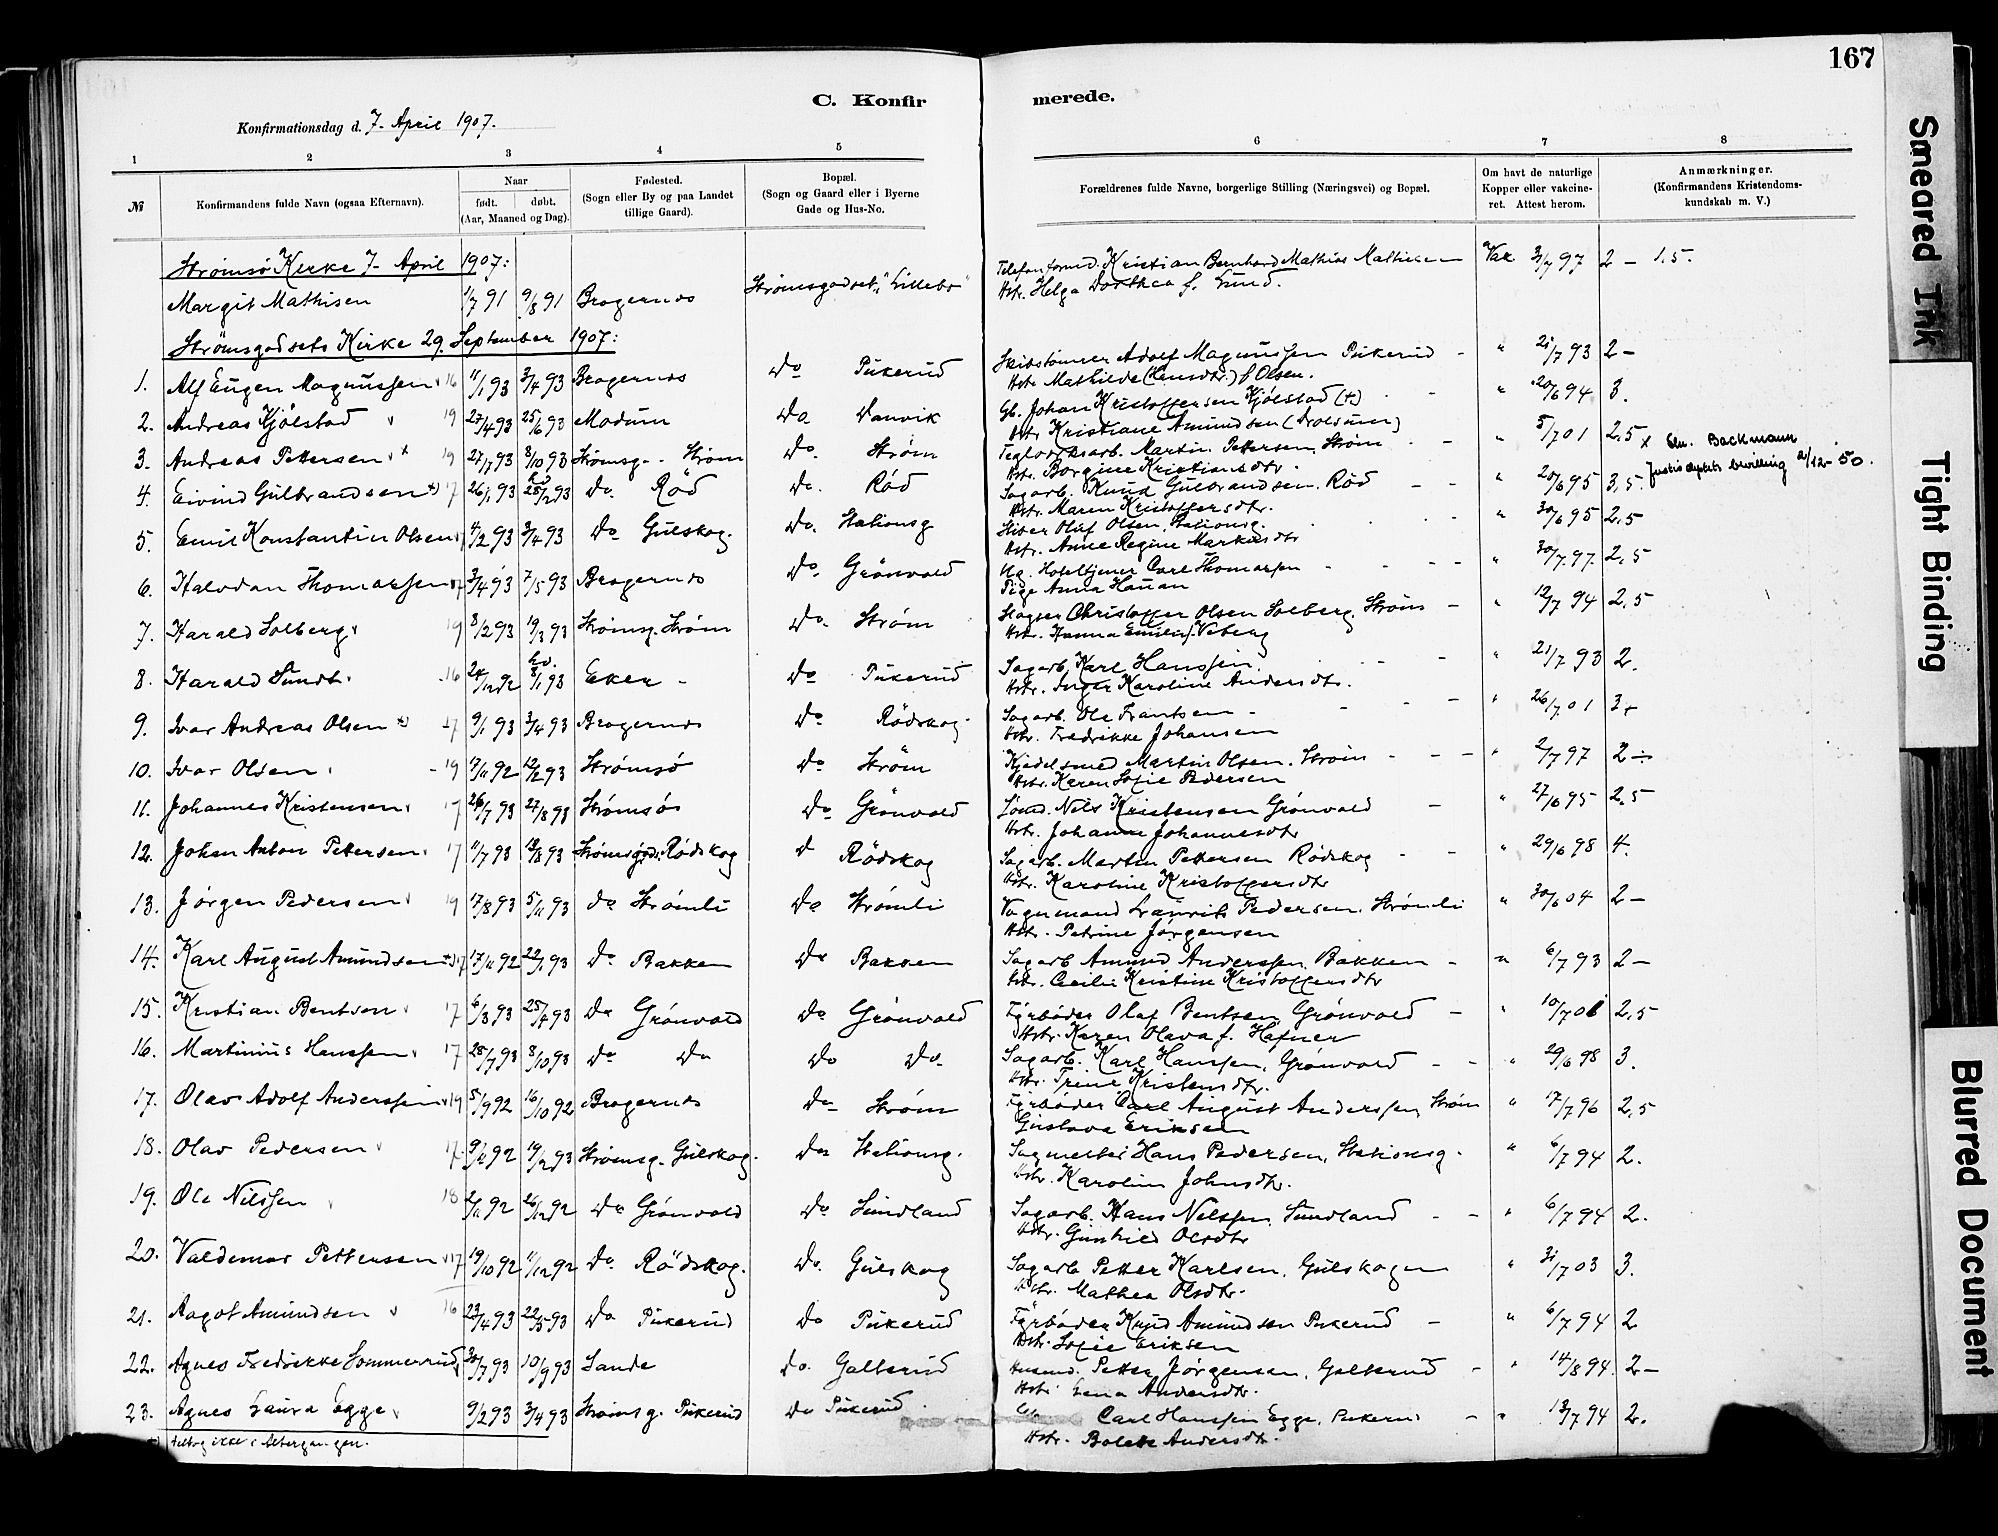 167
C. Konfirmerede.
Konfirmationsdag d. 7. April 1907.
1 2 3 4 5 6 7 8
№ Konfirmandens fulde Navn (ogsaa Efternavn). Naar født. døbt. (Aar, Maaned og Dag). Fødested. (Sogn eller By og paa Landet tillige Gaard). Bopæl. (Sogn og Gaard eller i Byerne Gade og Hus-No. Forældrenes fulde Navne, borgerlige Stilling (Næringsvei) og Bopæl. Om havt de naturlige Kopper eller vakcineret. Attest herom. Anmærkninger. (Konfirmandens Kristendomskundskab m. V.)
Strømsø Kirke 7. April 1907:
Margit Mathisen 1/7 91 9/8 91 Bragernes Strømsgodset, "Lillebo" Telefonformd. Kristian Bernhard Mathias Mathisen Vak 3/7 97 2 - 1.5.
Hstr. Helga Dorthea f. Lund.
Strömsgodsets Kirke 29. September 1907:
1. Alf Eugen Magnussen 16 11/1 93 3/4 93 Bragernes Do Pukerud Skibstømmer Adolf Magnussen Pukerud - " 21/7 93 2 -
Hstr. Mathilde f Olsen.
2. Andreas Kjølstad 19 27/4 93 25/6 93 Modum Do Danvik Gb. Johan Kristoffersen Kjølstad (+) " 20/6 94 3.
Hstr. Kristiane Amundsen
3. Andreas Pettersen + 19 27/7 93 8/10 93 Strømsg. Strøm Do. Strøm Teglværksarb. Martin Pettersen, Strøm " 5/7 01 2.5 x Backmann
Hstr. Borgine Kristiansdtr. bevilling 2/12-50.
4. Eivind Gulbrandsen +) 17 26/1 93 25/2 93 Do. Rød Do. Rød Sagarb. Knud Gulbrandsen. Rød " 20/6 95 3,5.
Hstr. Maren Kristoffersdtr.
5. Emil Konstantin Olsen 17 4/2 93 3/4 93 Do Gulskog. Do. Stationsg Olaf Olsen, Stationsg. " 30/6 95 2.5
Hstr. Anne Regine Markusdtr
6. Halvdan Thomassen 17 3/4 93 7/5 93 Bragernes Do. Grönvold Ug. Hoteltjener Carl Thomassen " 30/7 97. 2,5
Pige Anna Hauan
7. Harald Solberg 19 8/2 93 19/3 93 Strømsg. Strøm Do. Strøm Christoffer Olsen Solberg. Strøm - " 12/7 94 2,5
Hstr. Hanna Emilie f. Viberg
8. Harald Sundt 16 24/12 92 8/1 93 Eker - Do Pukerud Sagarb. Karl Hanssen. " 21/7 93 2.
Hstr. Inger Karoline Andersdtr.
9. Ivar Andreas Olsen +) 17 9/1 93 3/4 93 Bragernes Do Rödskog. Sagarb. Ole Frantsen - " 26/7 01 3+
Hstr. Fredrikke Johansen
10. Ivar Olsen 19 9/11 92 12/2 93 Strømsö Do Strøm Kjedelsmed Martin Olsen. Strøm " 2/7 97 2÷
Hstr. Karen Sofie Pedersen
11. Johannes Kristensen 17 26/7 93 27/8 93 Strømsø Do Grönvold Nils Kristensen Grønvold - " 27/6 95 2.5
Hstr. Johanne Johannesdtr
12. Johan Anton Pettersen 17 11/7 93 13/8 93 Strømsgods. Rødskog D Rödskog Sagarb. Martin Pettersen Rødskog " 29/6 98 4.
Hstr. Karoline Kristoffersdtr
13. Jørgen Pedersen 19 17/8 93 5/11 93 Do Strømli Do Strømli Vognmand Lauritz Pedersen. Strømli " 30/6 04 2 -
Hstr. Petrine Jørgensen
14. Karl August Amundsen +) 17 17/11 92 22/1 93 Do Bakken Do Bakken Sagarb Amund Anderssen Bakken - " 6/7 93 2 -
Hstr. Cecilie Kristine Kristoffersdtr
15. Kristian Bentson 17 6/3 93 25/4 93 Do Grønvold Do Grønvold Fyrbøder Olaf Bentsen Grønvold - " 10/7 01 2,5
Hstr. Karen Olava f. Hafner
16. Martinius Hanssen 17 25/7 93 8/10 93 Do Do Do Do. Sagarb. Karl Hanssen, Grønvold " 29/6 98 3.
Hstr. Trine Kristensdtr.
17. Olav Adolf Anderssen 19 5/9 92 16/10 92 Bragernes Do Strøm Fyrbøder Carl August Anderssen, Strøm " 17/7 96 2,5
Gustava Eriksen
18. Olav Pedersen 17 9/12 92 19/2 93 Strømsg. Gulskog. Do Stationsg. Sagmester Hans Pedersen, Stationsg. " 6/7 94 2.
Hstr. Karoline Johnsdtr.
19. Ole Nilssen 18 2/11 92 26/12 92 Do Grønvold Do Sundland Sagarb. Hans Nilssen, Sundland " 6/7 94 2.
Hstr. Gunhild Olsdtr
20. Valdemar Pettersen 17 19/10 92 11/12 92 Do Rødskog. Do. Gulskog Sagarb Petter Karlsen, Gulskogen " 31/7 03 3.
Hstr. Mathea Olsdtr.
21. Aagot Amundsen 16 23/4 93 22/5 93 Do Pukerud Do Pukerud Fyrbøder Knud Amundsen Pukerud - " 6/7 94 2
Hstr. Sofie Eriksen
22. Agnes Fredrikke Sommerrud 30/7 93 10/9 93 Sande Do. Galterud Husmd. Petter Jørgensen, Galterud - " 14/8 94. 2 -
Hstr. Lena Andersdtr.
23. Agnes Laura Egge 9/2 93 3/4 93 Strømsg. Pukerud Do Pukerud Carl Hanssen Egge, Pukerud - " 13/7 94 2.
Hstr. Bolette Andersdtr.
+) deltog ikke i Altergangen.
Smeared Ink
Tight Binding
Blurred Document